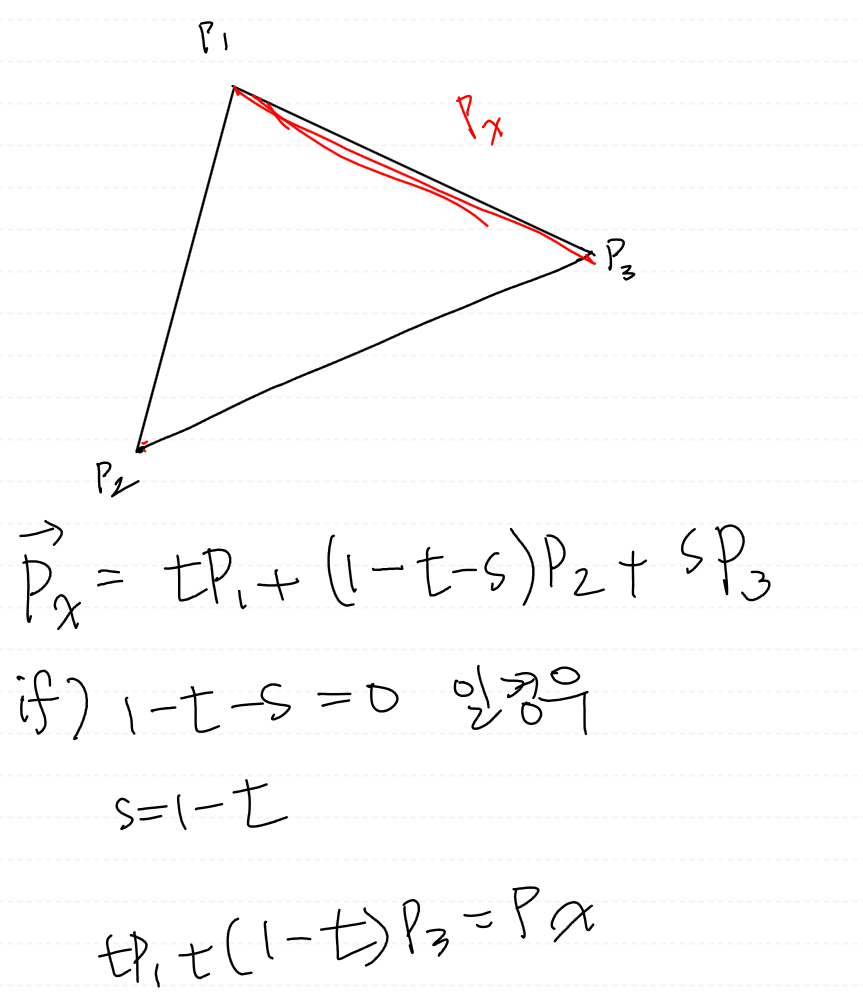 P₁
Pₓ
P₃
P₂
→Pₓ = tP₁ + (1-t-s)P₂ + sP₃
if) 1-t-s = 0 일경우
s=1-t
tP₁+(1-t)P₃=Px